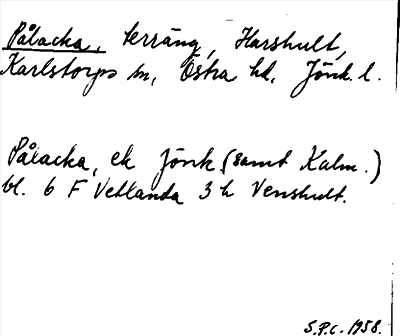 Pålacka, terräng, Harshult,
Karlstorps sn, Östra hd, Jönk. l.
Pålacka, ek Jönk. (samt Kalm.)
bl. 6 F Vetlanda 3 h Venshult.
S.P.C. 1958.